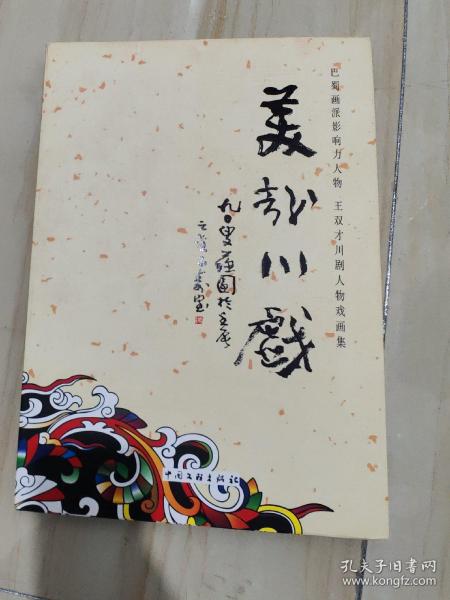 巴蜀画派影响力人物 王双才川剧人物戏画集
美哉川戏
中国文联出版社
孔夫子旧书网
www.kongfz.com